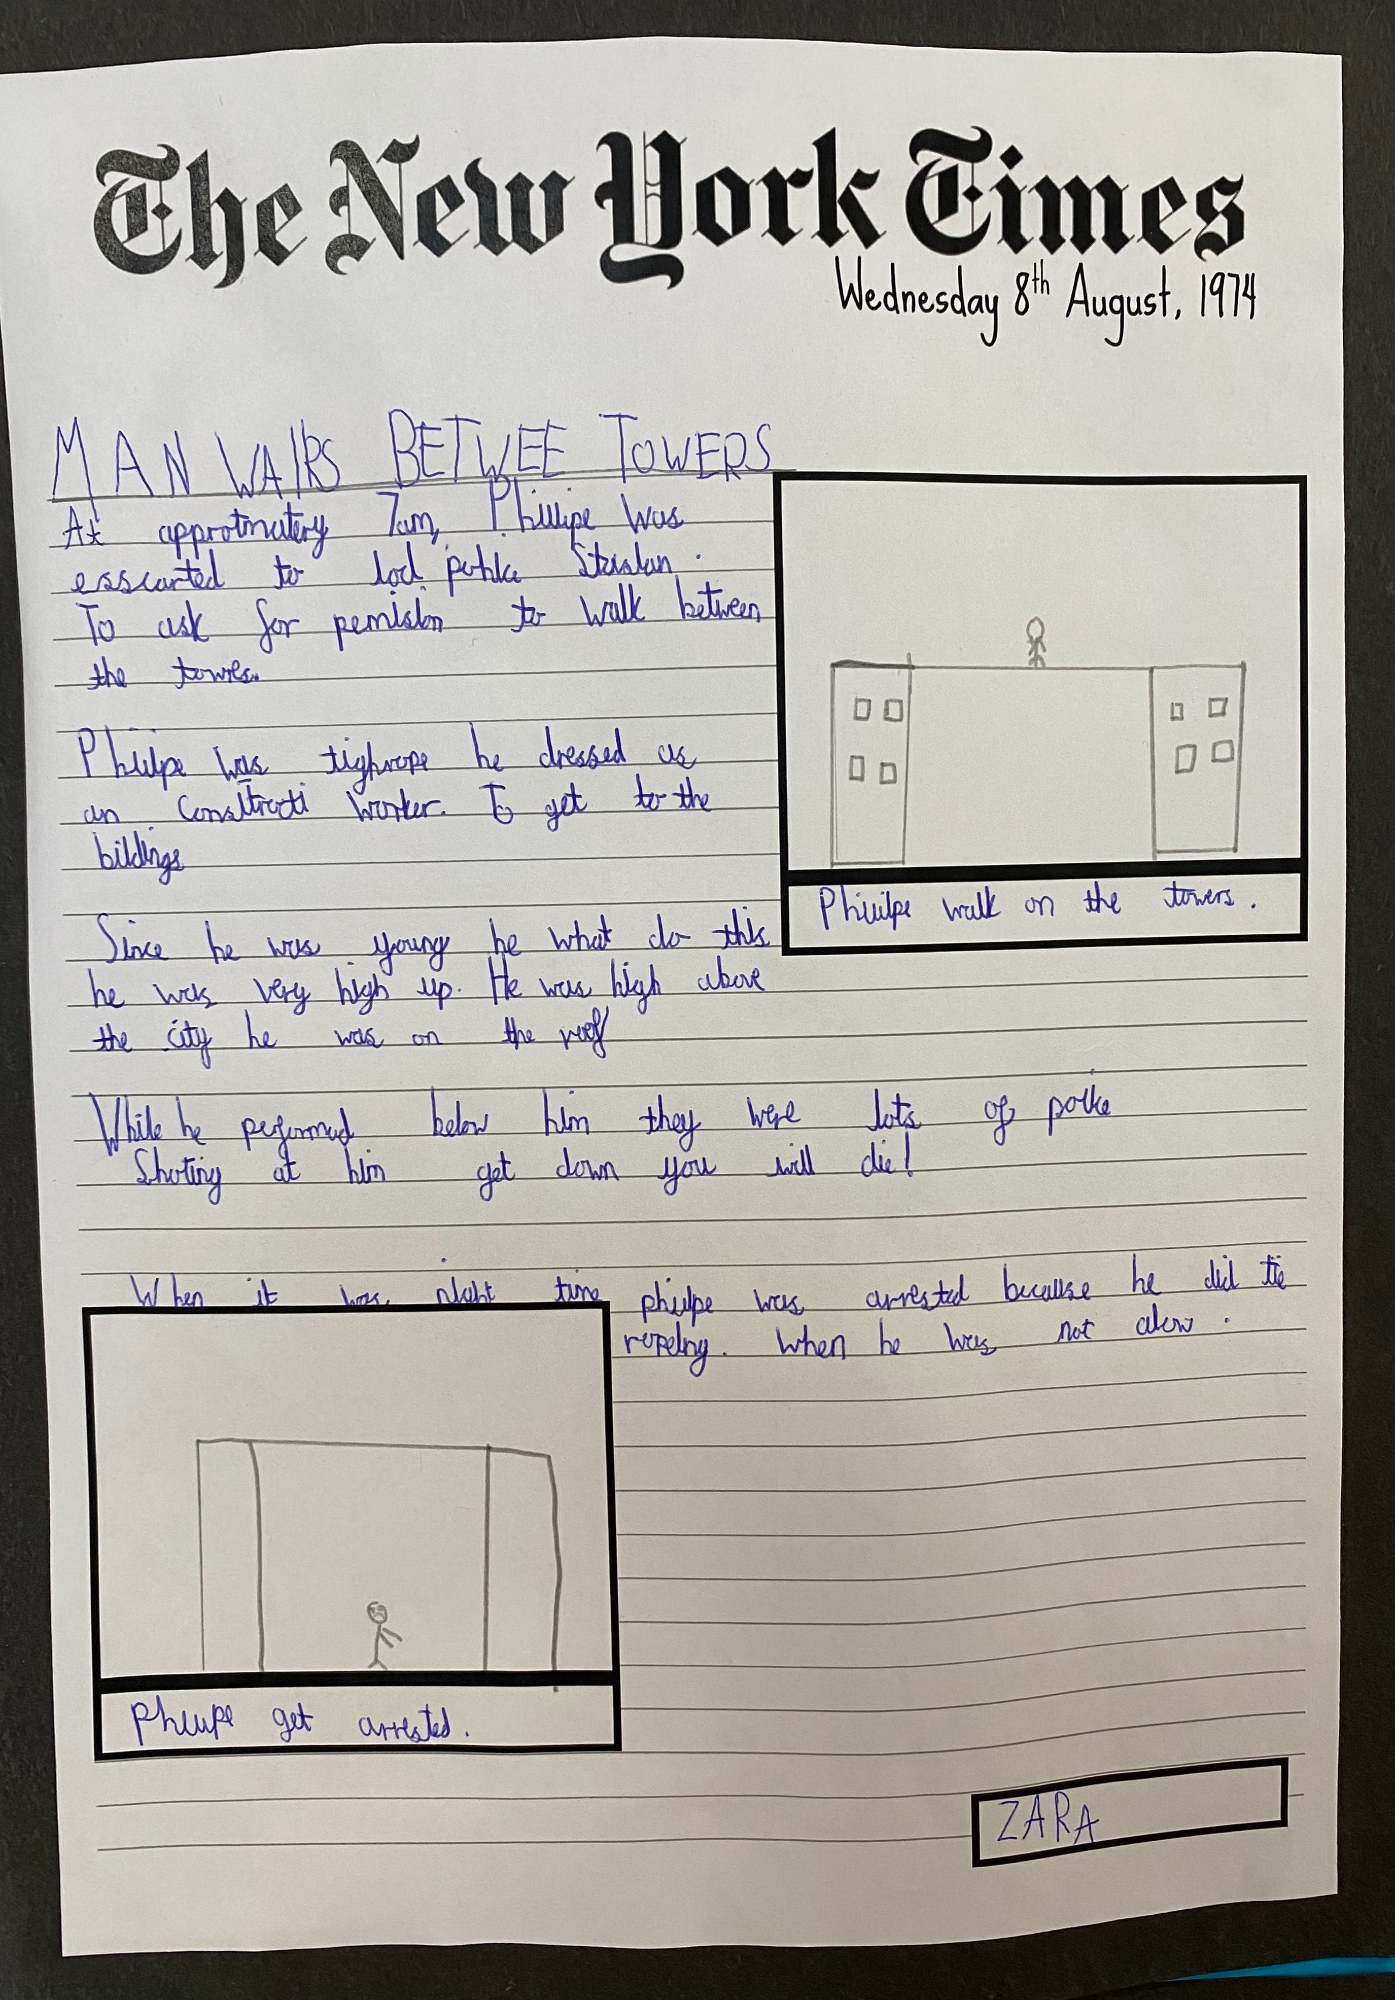 The New York Times
Wednesday 8th August, 1974
MAN WAlKS BETWEE TOWERS
At approtmatery 7am, Phillipe was
esscarted to locl polike Staslan.
To ask for pemision to walk between
the towres.
Philipe was tighrope he dressed as
an Consltructi worker. To get to the
bildings
Since he was young he what do this
he was very high up. He was high above
the city he was on the roof
While he peformed below him they were lots of polke
Shoting at him get down you will die!
When it was night time philpe was arrested because he did tie
ropeing. When he was not alow.
Phiulpe walk on the towers.
Philipe get arrested.
ZARA